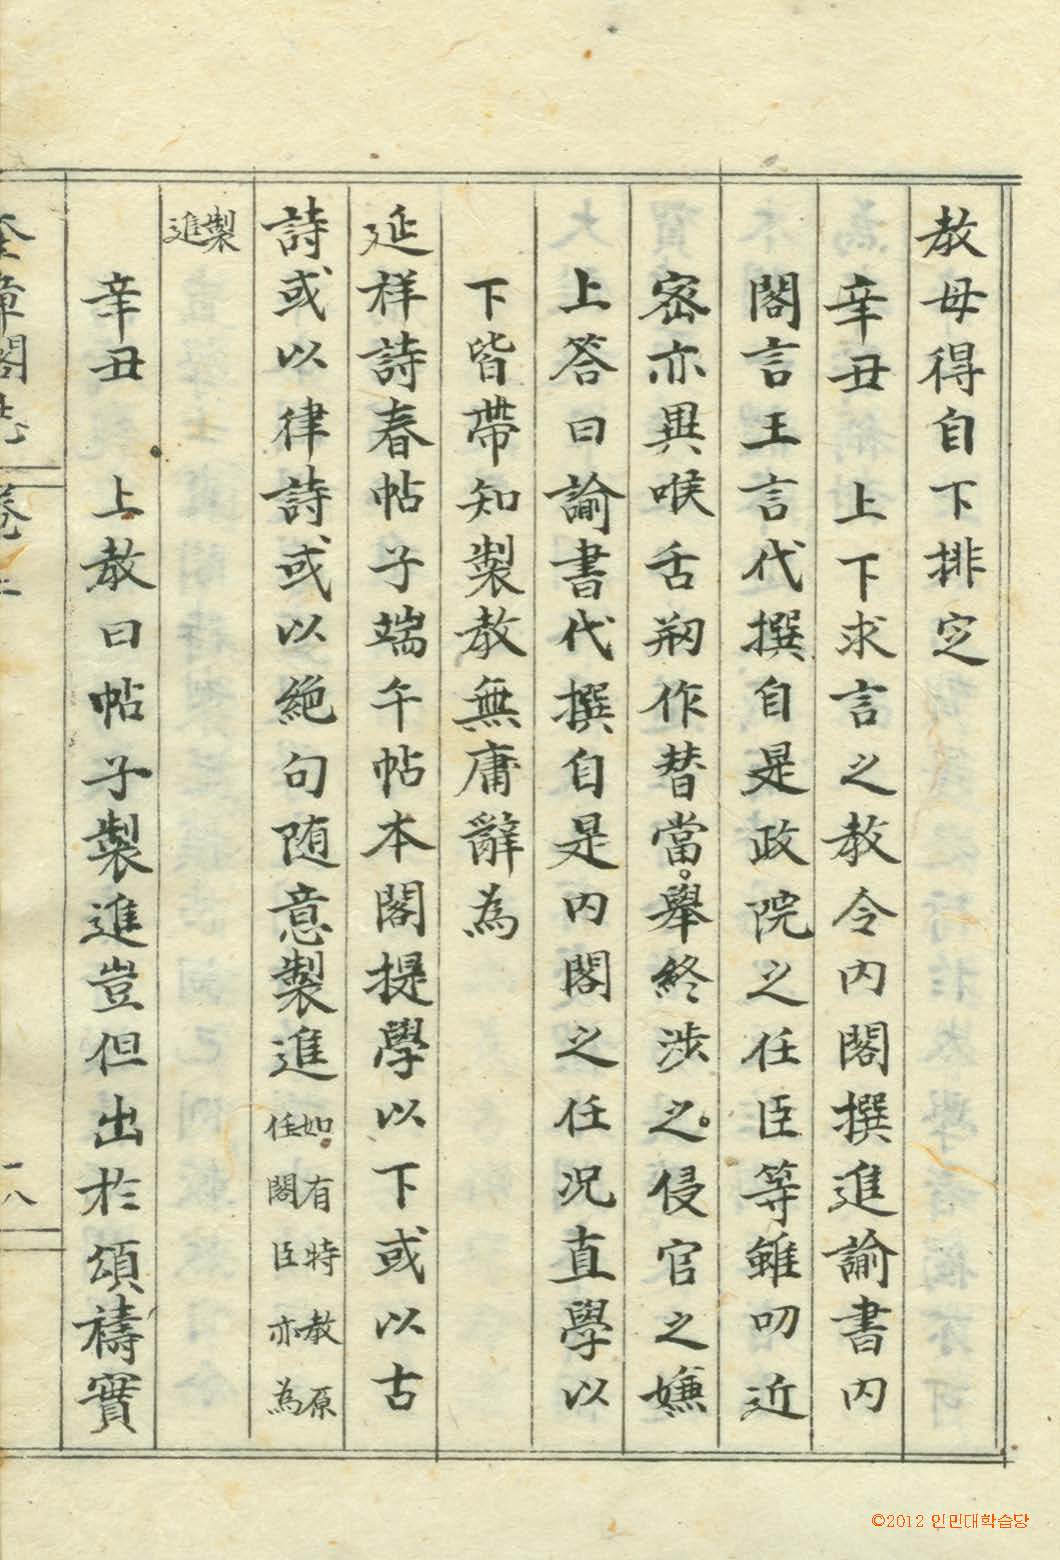 教毋得自下排定
辛丑　上下求言之教令内閣撰進諭書内
閣言王言代撰自是政院之任臣等雖叨近
密亦異喉舌刱作替當擧終涉之侵官之嫌
上答曰諭書代撰自是内閣之任况直學以
下皆帶知製教無庸辭為
延祥詩春帖子端午帖本閣提學以下或以古
詩或以律詩或以絶句随意製進如有特教原
任閣臣亦為
製
進
辛丑　上教曰帖子製進豈但出於頌禱實
奎章閣志　卷之　十八
©2012 인민대학습당